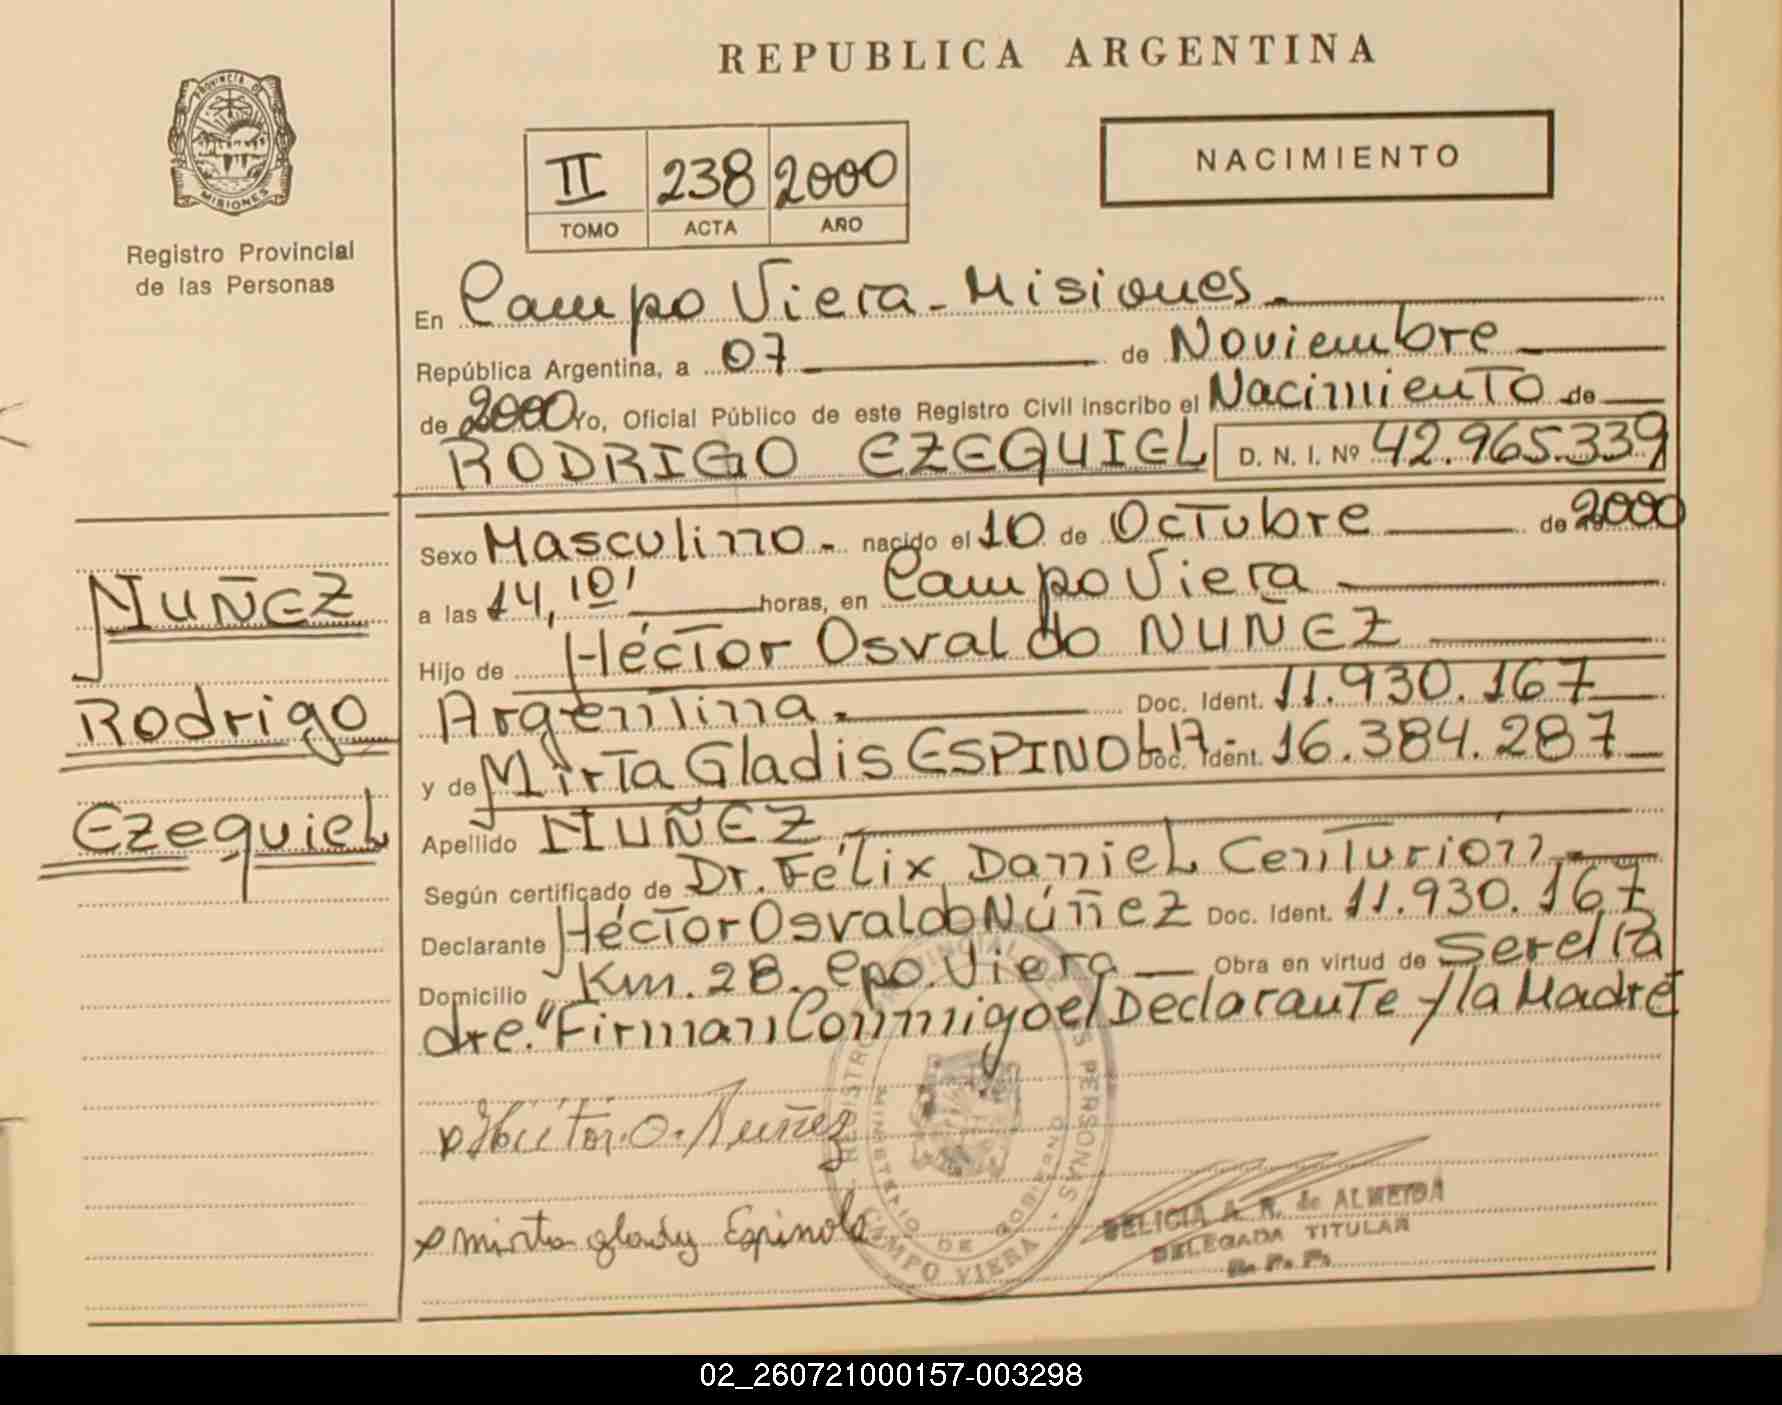 REPUBLICA ARGENTINA
PROVINCIA DE
MISIONES
Registro Provincial
de las Personas
II 238 2000
TOMO ACTA AÑO
NACIMIENTO
En Campo Viera - Misiones.
República Argentina, a 07 de Noviembre
de 2000 Yo, Oficial Público de este Registro Civil inscribo el Nacimiento de
RODRIGO EZEQUIEL D. N. I. Nº 42.965.339
Sexo Masculino. - nacido el 10 de Octubre de 2000
a las 14,10' horas, en Campo Viera
Hijo de Héctor Osvaldo NUÑEZ
Argentina. Doc. Ident. 11.930.167
y de Mirta Gladis ESPINOLA - Doc. Ident. 16.384.287
Apellido NUÑEZ
Según certificado de Dr. Félix Daniel Centurión
Declarante Héctor Osvaldo Núñez Doc. Ident. 11.930.167
Domicilio Km. 28. Cpo. Viera Obra en virtud de ser el Pa
dre." Firman Conmigo el Declarante y la Madre
NUÑEZ
Rodrigo
Ezequiel
Héctor. O. Nuñez
mirta glady Espinola
REGISTRO PROVINCIAL DE LAS PERSONAS -
MINISTERIO DE GOBIERNO
CAMPO VIERA
DELICIA A. R. de ALMEIDA
DELEGADA TITULAR
R. P. P.
02_260721000157-003298